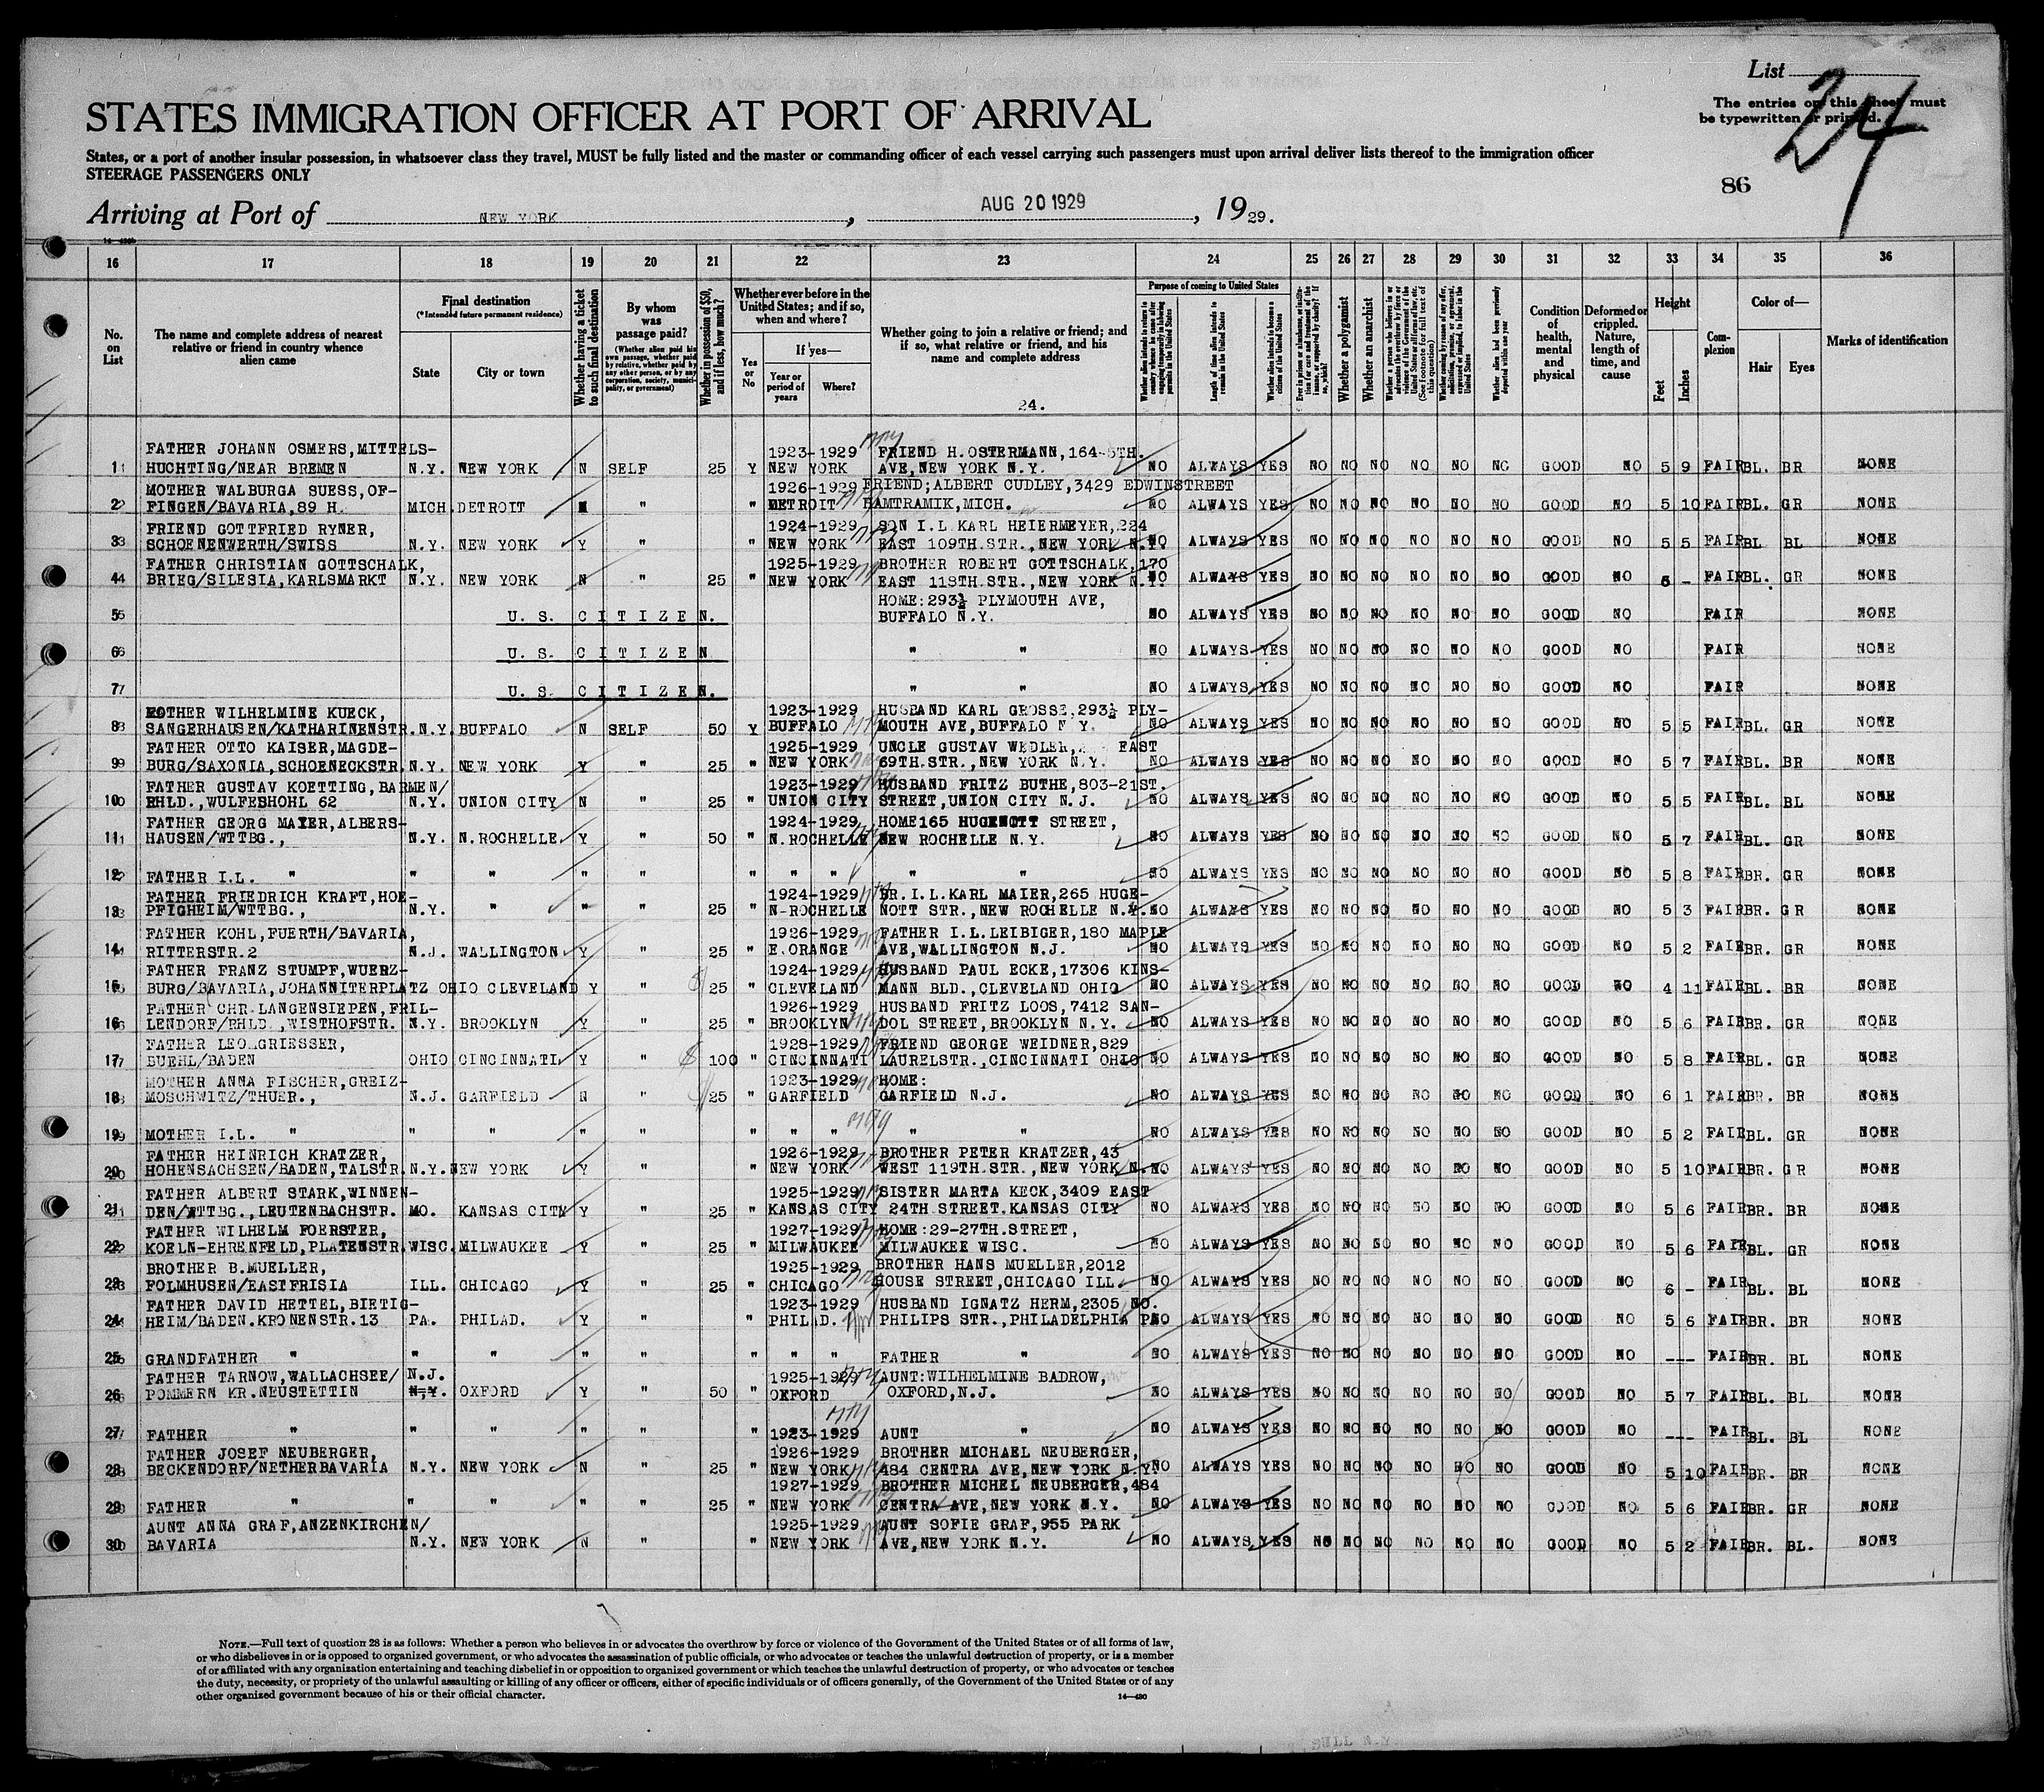 List
24
The entries on this sheet must
be typewritten or printed.
STATES IMMIGRATION OFFICER AT PORT OF ARRIVAL
States, or a port of another insular possession, in whatsoever class they travel, MUST be fully listed and the master or commanding officer of each vessel carrying such passengers must upon arrival deliver lists thereof to the immigration officer
STEERAGE PASSENGERS ONLY
86
Arriving at Port of NEW YORK, AUG 20 1929, 1929.
16 17 18 19 20 21 22 23 24 25 26 27 28 29 30 31 32 33 34 35 36
No. on List
The name and complete address of nearest relative or friend in country whence alien came
Final destination
(*Intended future permanent residence)
State
City or town
Whether having a ticket to such final destination
By whom was passage paid?
(Whether alien paid his own passage, whether paid by relative, whether paid by any other person, or by any corporation, society, municipality, or government)
Whether in possession of $50, and if less, how much?
Whether ever before in the United States; and if so, when and where?
Yes or No
If yes—
Year or period of years
Where?
Whether going to join a relative or friend; and if so, what relative or friend, and his name and complete address
24.
Purpose of coming to United States
Length of time alien intends to remain in the United States
Whether alien intends to become a citizen of the United States
Whether a polygamist
Whether an anarchist
Condition of health, mental and physical
Deformed or crippled. Nature, length of time, and cause
Height
Feet
Inches
Complexion
Color of—
Hair
Eyes
Marks of identification
FATHER JOHANN OSMERS, MITTELS- 1923-1929 FRIEND H.OSTERMANN,164-5TH.
1 HUCHTING/NEAR BREMEN N.Y. NEW YORK N SELF 25 Y NEW YORK AVE,NEW YORK N.Y. NO ALWAYS YES NO NO NO NO NO NO GOOD NO 5 9 FAIR BL. BR NONE
MOTHER WALBURGA SUESS,OF- 1926-1929 FRIEND;ALBERT CUDLEY,3429 EDWINSTREET
2 FINGEN/BAVARIA,89 H. MICH. DETROIT " " DETROIT HAMTRAMIK,MICH. NO ALWAYS YES NO NO NO NO NO NO GOOD NO 5 10 FAIR BL. GR NONE
FRIEND GOTTFRIED RYNER, 1924-1929 SON I.L KARL HEIERMEYER,224
3 SCHOENENWERTH/SWISS N.Y. NEW YORK Y " " NEW YORK EAST 109TH.STR.,NEW YORK N.Y. NO ALWAYS YES NO NO NO NO NO NO GOOD NO 5 5 FAIR BL BL NONE
FATHER CHRISTIAN GOTTSCHALK, 1925-1929 BROTHER ROBERT GOTTSCHALK,170
4 BRIEG/SILESIA,KARLSMARKT N.Y. NEW YORK N " 25 " NEW YORK EAST 118TH.STR.,NEW YORK N.Y. NO ALWAYS YES NO NO NO NO NO NO GOOD NO 6 - FAIR BL. GR NONE
HOME:293½ PLYMOUTH AVE,
5 U. S. C I T I Z E N. BUFFALO N.Y. NO ALWAYS YES NO NO NO NO NO NO GOOD NO FAIR NONE
6 U. S. C I T I Z E N " " NO ALWAYS YES NO NO NO NO NO NO GOOD NO FAIR NONE
7 U. S. C I T I Z E N. " " NO ALWAYS YES NO NO NO NO NO NO GOOD NO FAIR NONE
MOTHER WILHELMINE KUECK, 1923-1929 HUSBAND KARL GROSSE,293½ PLY-
8 SANGERHAUSEN/KATHARINENSTR. N.Y. BUFFALO N SELF 50 Y BUFFALO MOUTH AVE,BUFFALO N Y. NO ALWAYS YES NO NO NO NO NO NO GOOD NO 5 5 FAIR BL. GR NONE
FATHER OTTO KAISER,MAGDE- 1925-1929 UNCLE GUSTAV WEDLER, EAST
9 BURG/SAXONIA,SCHOENECKSTR. N.Y. NEW YORK Y " 25 " NEW YORK 69TH.STR.,NEW YORK N.Y. NO ALWAYS YES NO NO NO NO NO NO GOOD NO 5 7 FAIR BL. BR NONE
FATHER GUSTAV KOETTING,BARMEN/ 1923-1929 HUSBAND FRITZ BUTHE,803-21ST.
10 RHLD.,WULFESHOHL 62 N.Y. UNION CITY N " 25 " UNION CITY STREET,UNION CITY N.J. NO ALWAYS YES NO NO NO NO NO NO GOOD NO 5 5 FAIR BL. BL NONE
FATHER GEORG MAIER,ALBERS- 1924-1929 HOME165 HUGENOTT STREET,
11 HAUSEN/WTTBG., N.Y. N.ROCHELLE Y " 50 " N.ROCHELLE NEW ROCHELLE N.Y. NO ALWAYS YES NO NO NO NO NO NO GOOD NO 5 7 FAIR BL. GR NONE
12 FATHER I.L. " " " " " " " " " " NO ALWAYS YES NO NO NO NO NO NO GOOD NO 5 8 FAIR BR. GR NONE
FATHER FRIEDRICH KRAFT,HOE- 1924-1929 BR.I.L.KARL MAIER,265 HUGE-
13 PFIGHEIM/WTTBG., N.Y. " " " 25 " N-ROCHELLE NOTT STR.,NEW ROCHELLE N.Y. NO ALWAYS YES NO NO NO NO NO NO GOOD NO 5 3 FAIR BR. GR NONE
FATHER KOHL,FUERTH/BAVARIA, 1926-1929 FATHER I.L.LEIBIGER,180 MAPLE
14 RITTERSTR.2 N.J. WALLINGTON Y " 25 " E.ORANGE AVE,WALLINGTON N.J. NO ALWAYS YES NO NO NO NO NO NO GOOD NO 5 2 FAIR BR. GR NONE
FATHER FRANZ STUMPF,WUERZ- 1924-1929 HUSBAND PAUL ECKE,17306 KINS-
15 BURG/BAVARIA,JOHANNITERPLATZ OHIO CLEVELAND Y " 25 " CLEVELAND MANN BLD.,CLEVELAND OHIO NO ALWAYS YES NO NO NO NO NO NO GOOD NO 4 11 FAIR BL. BR NONE
FATHER CHR.LANGENSIEPEN,FRIL- 1926-1929 HUSBAND FRITZ LOOS,7412 SAN-
16 LENDORF/RHLD.,WISTHOFSTR. N.Y. BROOKLYN Y " 25 " BROOKLYN DOL STREET,BROOKLYN N.Y. NO ALWAYS YES NO NO NO NO NO NO GOOD NO 5 6 FAIR BR. GR NONE
FATHER LEO.GRIESSER, 1928-1929 FRIEND GEORGE WEIDNER,829
17 BUEHL/BADEN OHIO CINCINNATI Y " $ 100 " CINCINNATI LAURELSTR.,CINCINNATI OHIO NO ALWAYS YES NO NO NO NO NO NO GOOD NO 5 8 FAIR BL. GR NONE
MOTHER ANNA FISCHER,GREIZ- 1923-1929 HOME:
18 MOSCHWITZ/THUER., N.J. GARFIELD N " 25 " GARFIELD GARFIELD N.J. NO ALWAYS YES NO NO NO NO NO NO GOOD NO 6 1 FAIR BR. BR NONE
19 MOTHER I.L. " " " " " " " " " " NO ALWAYS YES NO NO NO NO NO NO GOOD NO 5 2 FAIR BL. GR NONE
FATHER HEINRICH KRATZER, 1926-1929 BROTHER PETER KRATZER,43
20 HOHENSACHSEN/BADEN,TALSTR. N.Y. NEW YORK Y " " NEW YORK WEST 119TH.STR.,NEW YORK N. NO ALWAYS YES NO NO NO NO NO NO GOOD NO 5 10 FAIR BR. GR NONE
FATHER ALBERT STARK,WINNEN- 1925-1929 SISTER MARTA KECK,3409 EAST
21 DEN/WTTBG.,LEUTENBACHSTR. MO. KANSAS CITY Y " 25 " KANSAS CITY 24TH STREET.KANSAS CITY NO ALWAYS YES NO NO NO NO NO NO GOOD NO 5 6 FAIR BR. BR NONE
FATHER WILHELM FOERSTER, 1927-1929 HOME:29-27TH.STREET,
22 KOELN-EHRENFELD,PLATENSTR. WISC. MILWAUKEE Y " 25 " MILWAUKEE MILWAUKEE WISC. NO ALWAYS YES NO NO NO NO NO NO GOOD NO 5 6 FAIR BL. GR NONE
BROTHER B.MUELLER, 1925-1929 BROTHER HANS MUELLER,2012
23 FOLMHUSEN/EASTFRISIA ILL. CHICAGO Y " 25 " CHICAGO HOUSE STREET,CHICAGO ILL. NO ALWAYS YES NO NO NO NO NO NO GOOD NO 6 - FAIR BL. BL NONE
FATHER DAVID HETTEL,BIETIG- 1923-1929 HUSBAND IGNATZ HERM,2305 NO.
24 HEIM/BADEN.KRONENSTR.13 PA. PHILAD. Y " " PHILAD. PHILIPS STR.,PHILADELPHIA PA. NO ALWAYS YES NO NO NO NO NO NO GOOD NO 5 6 FAIR BR. BR NONE
25 GRANDFATHER " " " " " " " " FATHER " NO ALWAYS YES NO NO NO NO NO NO GOOD NO --- FAIR BR. BL NONE
FATHER TARNOW,WALLACHSEE/ N.J. 1925-1929 AUNT:WILHELMINE BADROW,
26 POMMERN KR.NEUSTETTIN N.Y. OXFORD Y " 50 " OXFORD OXFORD,N.J. NO ALWAYS YES NO NO NO NO NO NO GOOD NO 5 7 FAIR BL. BL NONE
27 FATHER " " " " " " 1923-1929 AUNT " NO ALWAYS YES NO NO NO NO NO NO GOOD NO --- FAIR BL. BL NONE
FATHER JOSEF NEUBERGER, 1926-1929 BROTHER MICHAEL NEUBERGER,
28 BECKENDORF/NETHERBAVARIA N.Y. NEW YORK N " 25 " NEW YORK 484 CENTRA AVE,NEW YORK N.Y. NO ALWAYS YES NO NO NO NO NO NO GOOD NO 5 10 FAIR BR. BR NONE
1927-1929 BROTHER MICHEL NEUBERGER,484
29 FATHER " " " " " 25 " NEW YORK CENTRA AVE,NEW YORK N.Y. NO ALWAYS YES NO NO NO NO NO NO GOOD NO 5 6 FAIR BR. GR NONE
AUNT ANNA GRAF,ANZENKIRCHEN/ 1925-1929 AUNT SOFIE GRAF,955 PARK
30 BAVARIA N.Y. NEW YORK N " " NEW YORK AVE,NEW YORK N.Y. NO ALWAYS YES NO NO NO NO NO NO GOOD NO 5 2 FAIR BR. BL. NONE
NOTE.—Full text of question 28 is as follows: Whether a person who believes in or advocates the overthrow by force or violence of the Government of the United States or of all forms of law,
or who disbelieves in or is opposed to organized government, or who advocates the assassination of public officials, or who advocates or teaches the unlawful destruction of property, or is a member
of or affiliated with any organization entertaining and teaching disbelief in or opposition to organized government or which teaches the unlawful destruction of property, or who advocates or teaches
the duty, necessity, or propriety of the unlawful assaulting or killing of any officer or officers, either of specific individuals or of officers generally, of the Government of the United States or of any
other organized government because of his or their official character.
14—430